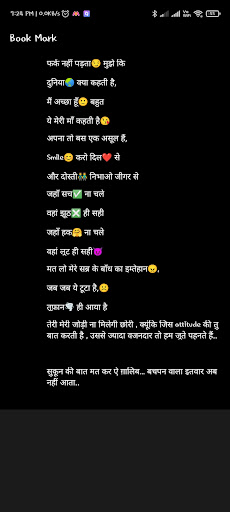 7:24 PM | 0.0KB/s
Book Mark
फर्क नहीं पड़ता😏 मुझे कि
दुनिया🌏 क्या कहती है,
मैं अच्छा हूँ🙂 बहुत
ये मेरी माँ कहती है😘
अपना तो बस एक असूल हैं,
Smile😊 करो दिल❤️ से
और दोस्ती👬 निभाओ जीगर से
जहाँ सच✅ ना चले
वहां झूठ❎ ही सही
जहाँ हक🤗 ना चले
वहां लूट ही सही😈
मत लो मेरे सब्र के बाँध का इम्तेहान😠,
जब जब ये टूटा है,🙁
तूफ़ान🌪️ ही आया है
तेरी मेरी जोड़ी ना मिलेगी छोरी , क्यूंकि जिस attitude की तु
बात करती है , उससे ज्यादा वजनदार तो हम जूते पहनते हैं..
सुकून की बात मत कर ऐ ग़ालिब... बचपन वाला इतवार अब
नहीं आता..